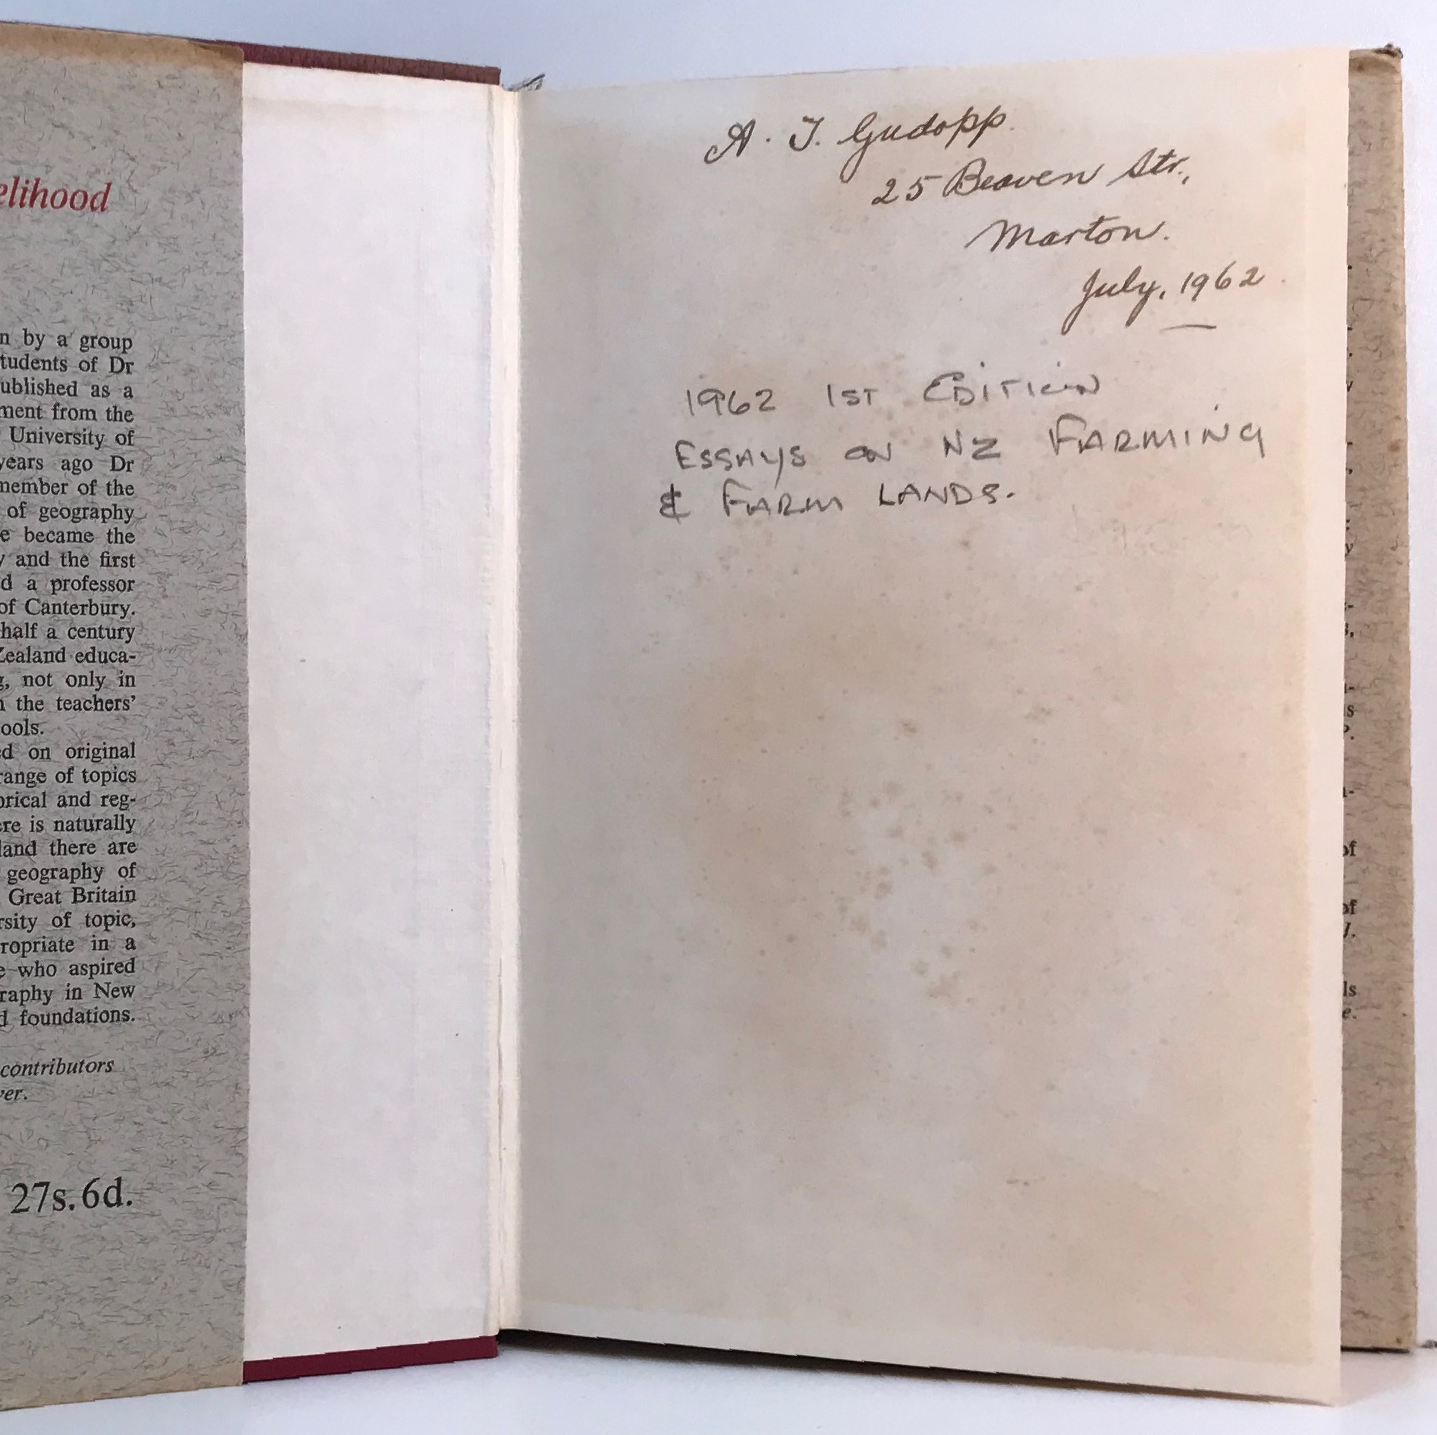 elihood
n by a group
tudents of Dr
ublished as a
ment from the
University of
years ago Dr
member of the
of geography
e became the
y and the first
d a professor
of Canterbury.
half a century
Zealand educa-
g, not only in
n the teachers'
ools.
ed on original
range of topics
orical and reg-
ere is naturally
land there are
geography of
Great Britain
rsity of topic,
ropriate in a
e who aspired
raphy in New
d foundations.
contributors
ver.
27s. 6d.
A. J. Gudopp.
25 Beaven Str.,
Marton.
July, 1962
1962 1ST EDITION
ESSAYS ON NZ FARMING
& FARM LANDS.
of
of
J.
ls
e.